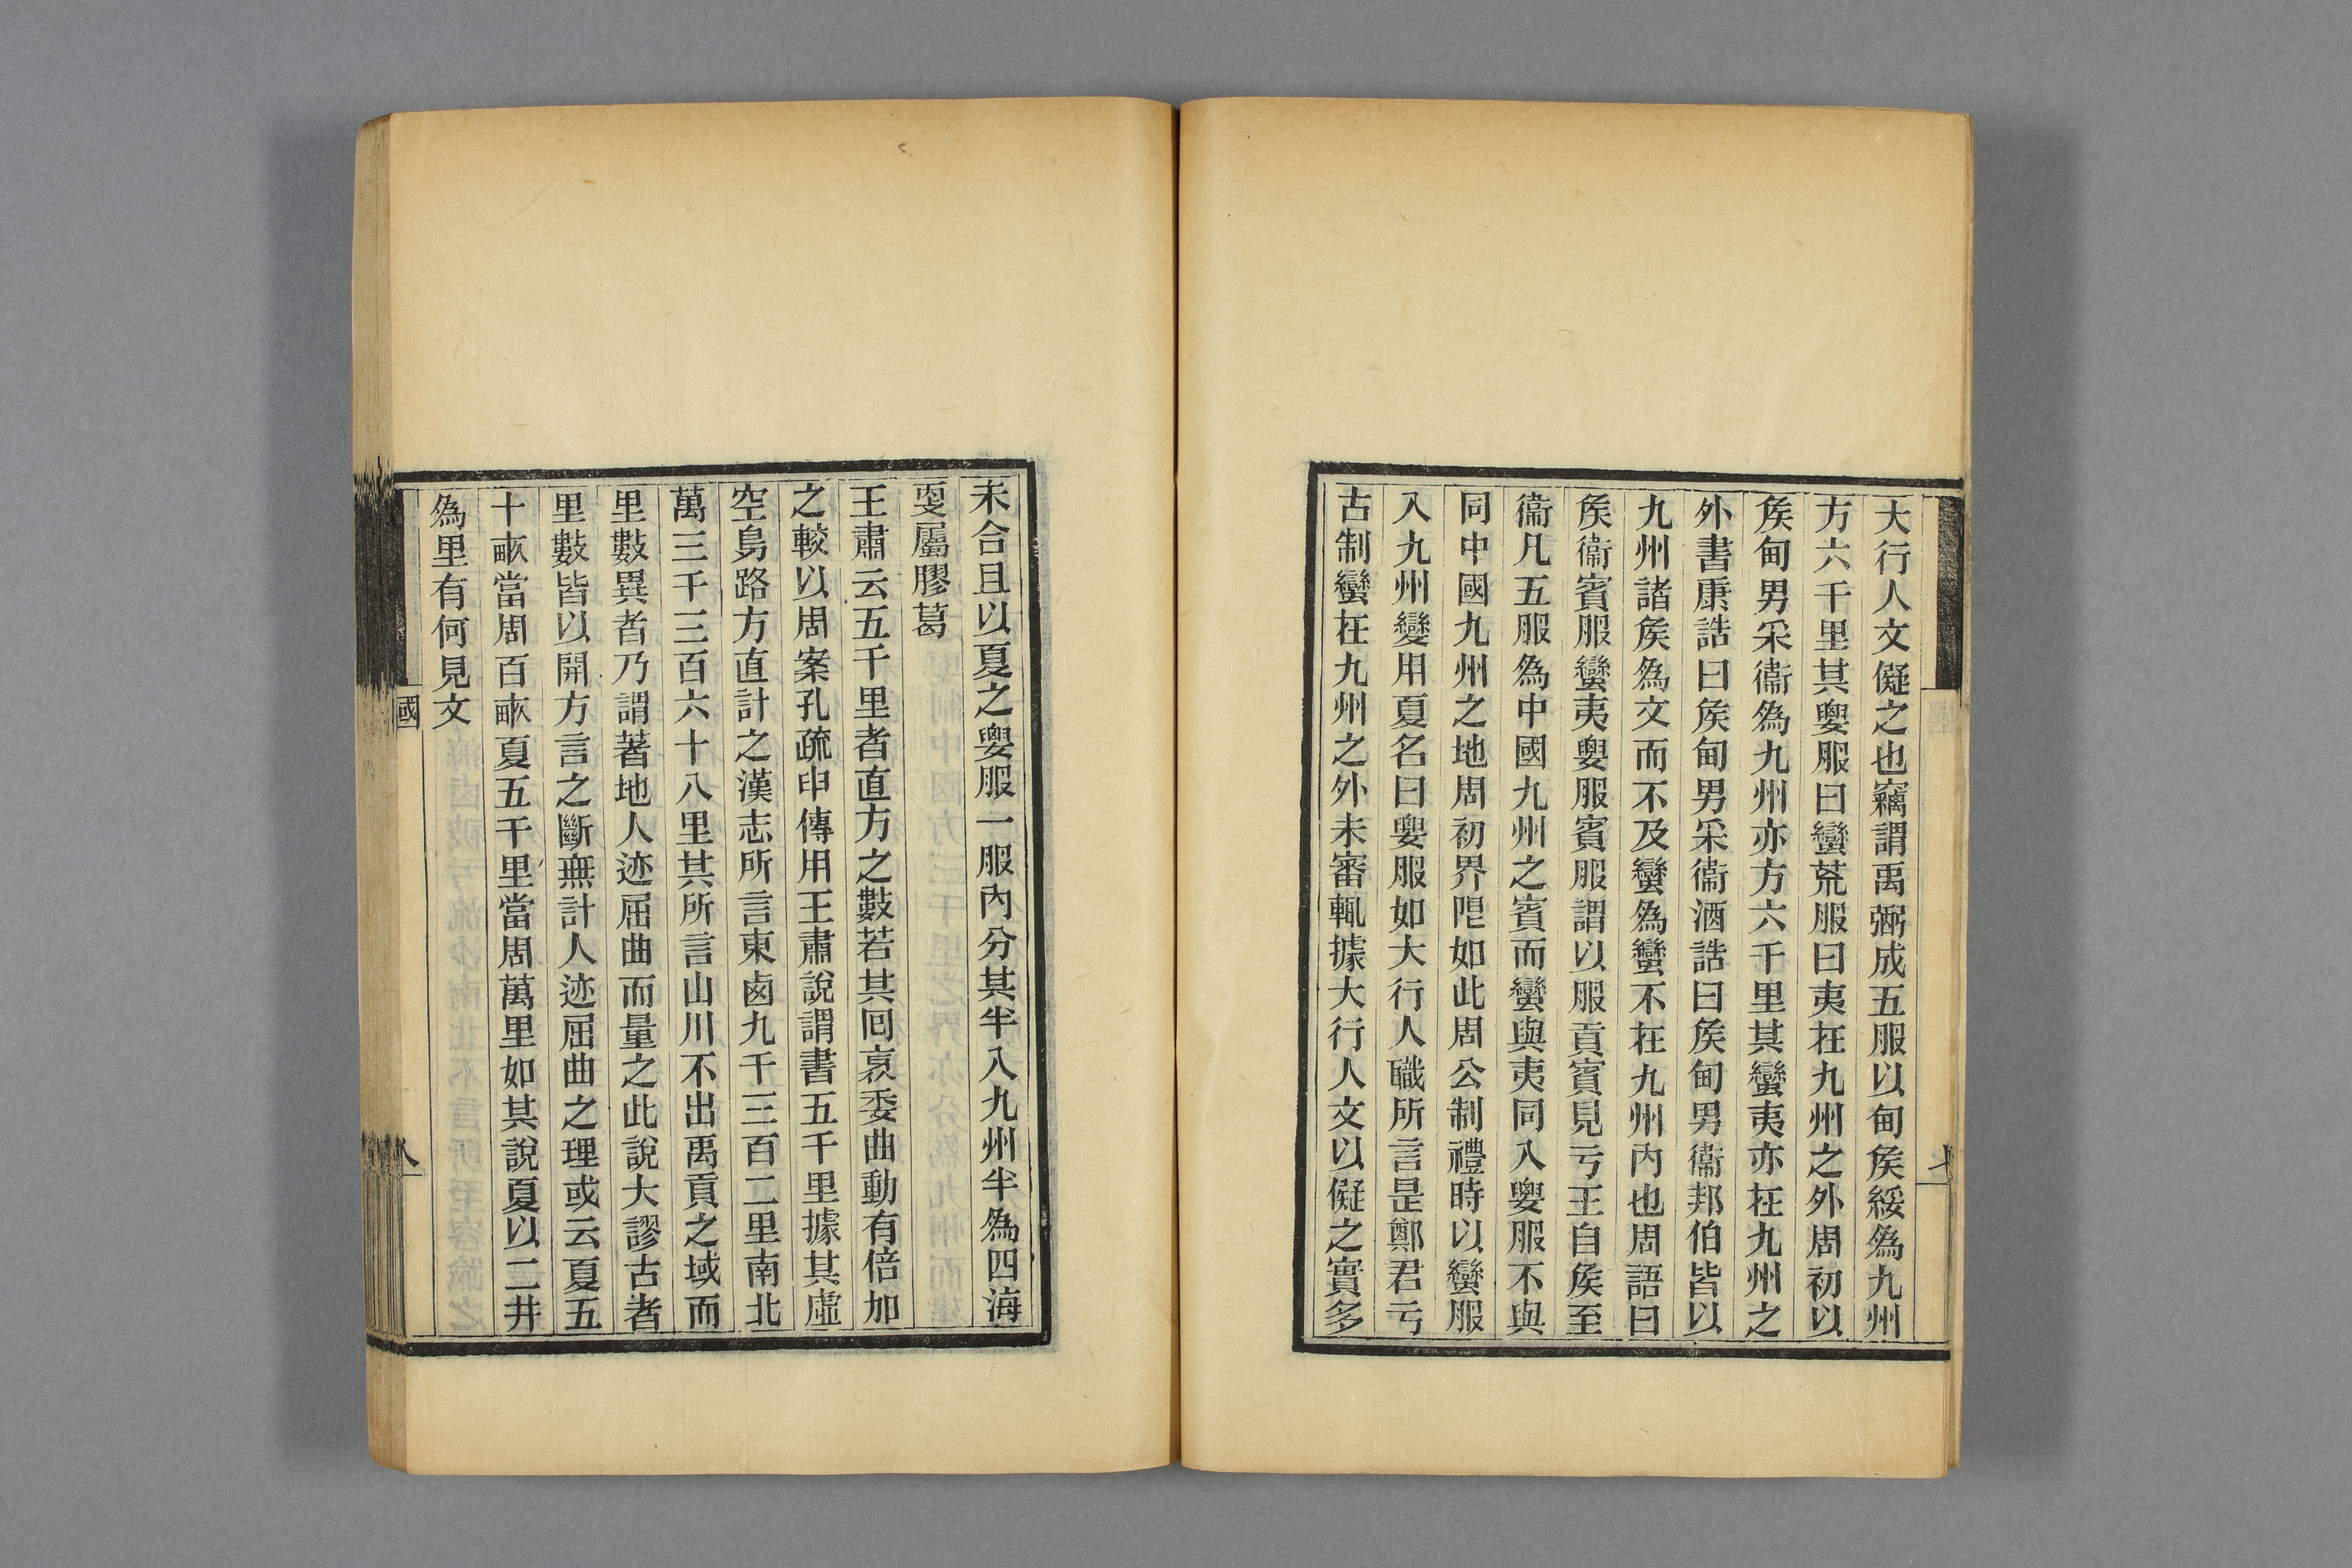 大行人文儗之也竊謂禹弼成五服以甸矦綏為九州
方六千里其㛰服曰蠻荒服曰夷在九州之外周初以
矦甸男采衞為九州亦方六千里其蠻夷亦在九州之
外書康誥曰矦甸男采衞酒誥曰矦甸男衞邦伯皆以
九州諸矦為文而不及蠻為蠻不在九州內也周語曰
矦衞賓服蠻夷要服賓服謂以服貢賓見亏王自矦至
衞凡五服為中國九州之賓而蠻與夷同入要服不與
同中國九州之地周初界限如此周公制禮時以蠻服
入九州變用夏名曰要服如大行人職所言是鄭君亏
古制蠻在九州之外未審輒據大行人文以儗之實多
未合且以夏之要服一服內分其半入九州半為四海
耎屬膠葛
王肅云五千里者直方之數若其回衺委曲動有倍加
之較以周案孔疏申傳用王肅說謂書五千里據其虛
空鳥路方直計之漢志所言東鹵九千三百二里南北
萬三千三百六十八里其所言山川不出禹貢之域而
里數異者乃謂著地人迹屈曲而量之此說大謬古者
里數皆以開方言之斷無計人迹屈曲之理或云夏五
十畝當周百畝夏五千里當周萬里如其說夏以二井
為里有何見文
國
八
七